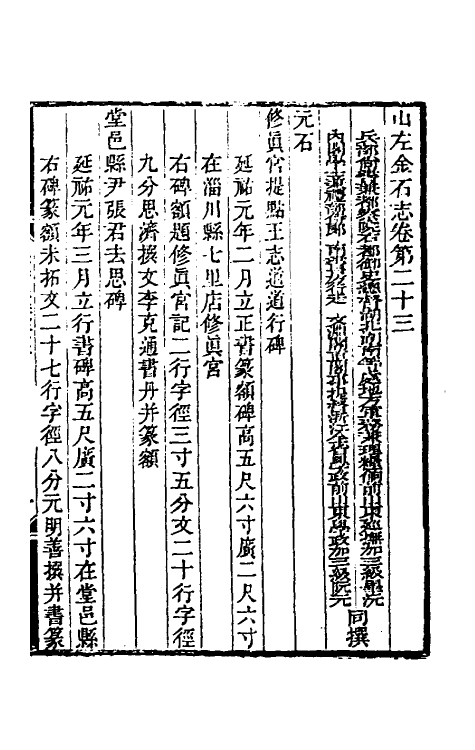 山左金石志卷第二十三
兵部尚書兼都察院右都御史總督湖北湖南等處地方軍務兼理糧餉前山東巡撫加三級畢沅
內閣學士兼禮部侍郎 南書房行走 文淵閣直閣事提督浙江全省學政前山東學政加三級阮元
同撰
元石
修眞宮提點王志道道行碑
延祐元年二月立正書篆額碑高五尺六寸廣二尺六寸
在淄川縣七里店修眞宮
右碑額題修眞宮記二行字徑三寸五分文二十行字徑
九分思濟撰文李克通書丹并篆額
堂邑縣尹張君去思碑
延祐元年三月立行書碑高五尺廣二寸六寸在堂邑縣
右碑篆額未拓文二十七行字徑八分元明善撰并書篆